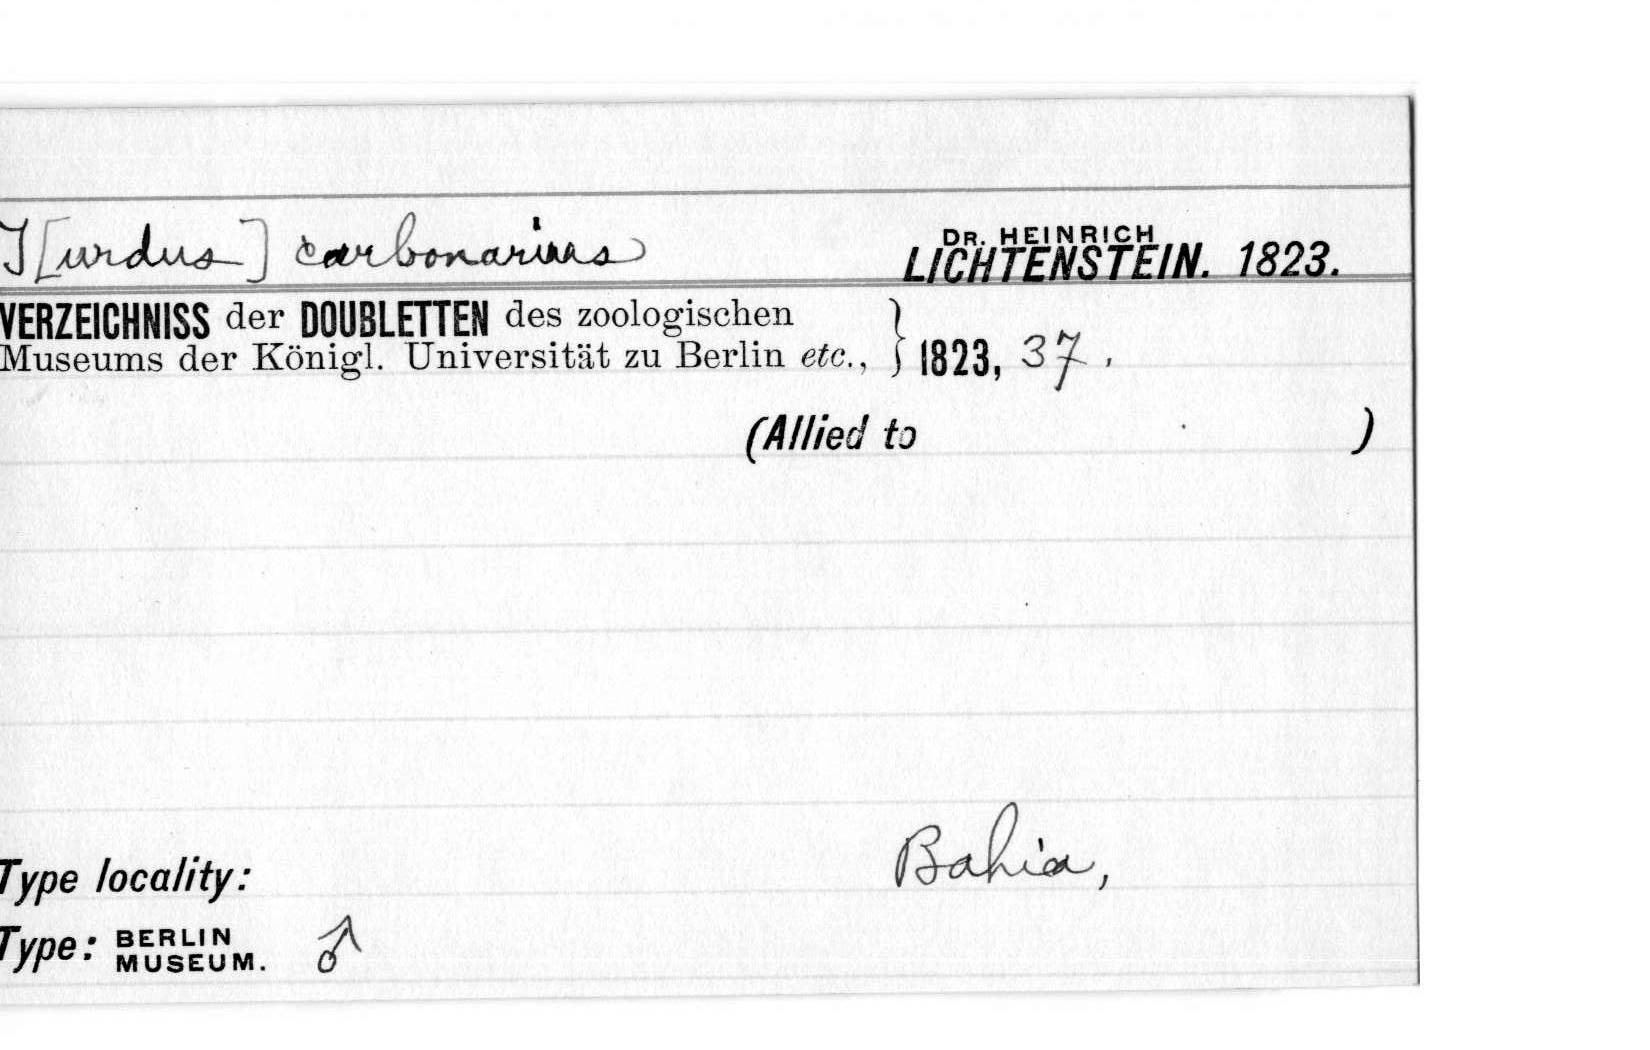 T[urdus] carbonarius
DR. HEINRICH
LICHTENSTEIN. 1823.
VERZEICHNISS der DOUBLETTEN des zoologischen
Museums der Königl. Universität zu Berlin etc., } 1823, 37.
(Allied to )
Bahia,
Type locality:
Type: BERLIN MUSEUM. ♂